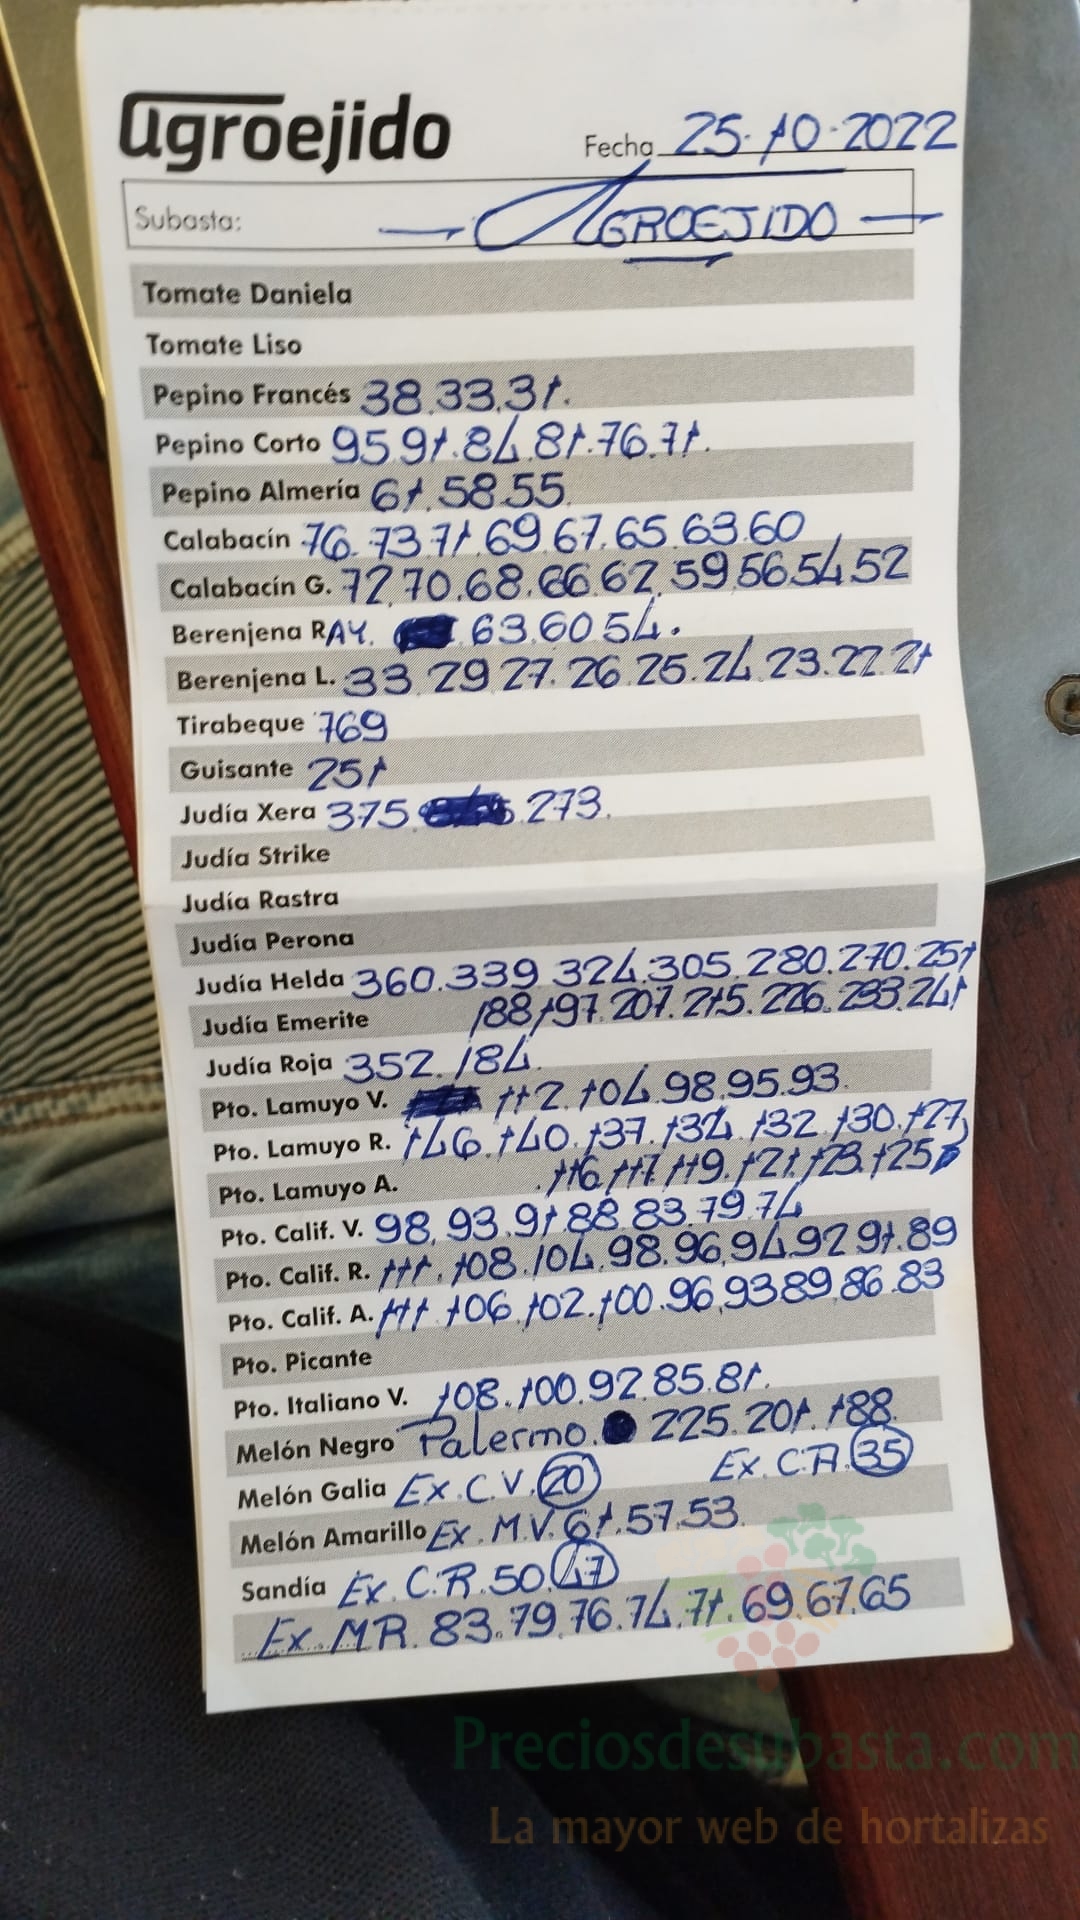 agroejido
Fecha 25-10-2022
Subasta: AGROEJIDO
Tomate Daniela
Tomate Liso
Pepino Francés 38.33.31.
Pepino Corto 95.91.84.81.76.71.
Pepino Almería 61.58.55
Calabacín 76.73.71.69.67.65.63.60
Calabacín G. 72.70.68.66.62.59.56.54.52
Berenjena RAY. 63.60.54.
Berenjena L. 33.29.27.26.25.24.23.22.21
Tirabeque 769
Guisante 251
Judía Xera 375. 273.
Judía Strike
Judía Rastra
Judía Perona
Judía Helda 360.339.324.305.280.270.251
Judía Emerite 188.197.207.215.226.233.241
Judía Roja 352.184.
Pto. Lamuyo V. 112.104.98.95.93.
Pto. Lamuyo R. 146.140.137.134.132.130.127
Pto. Lamuyo A. .116.117.119.121.123.125
Pto. Calif. V. 98.93.91.88.83.79.74
Pto. Calif. R. 111.108.104.98.96.94.92.91.89
Pto. Calif. A. 111.106.102.100.96.93.89.86.83
Pto. Picante
Pto. Italiano V. 108.100.92.85.81.
Melón Negro Palermo. 225.201.188.
Melón Galia Ex.C.V. 20 Ex.C.A. 35
Melón Amarillo Ex.M.V. 61.57.53.
Sandía Ex.C.R. 50.47
Ex.MR. 83.79.76.74.71.69.67.65
Preciosdesubasta.com
La mayor web de hortalizas